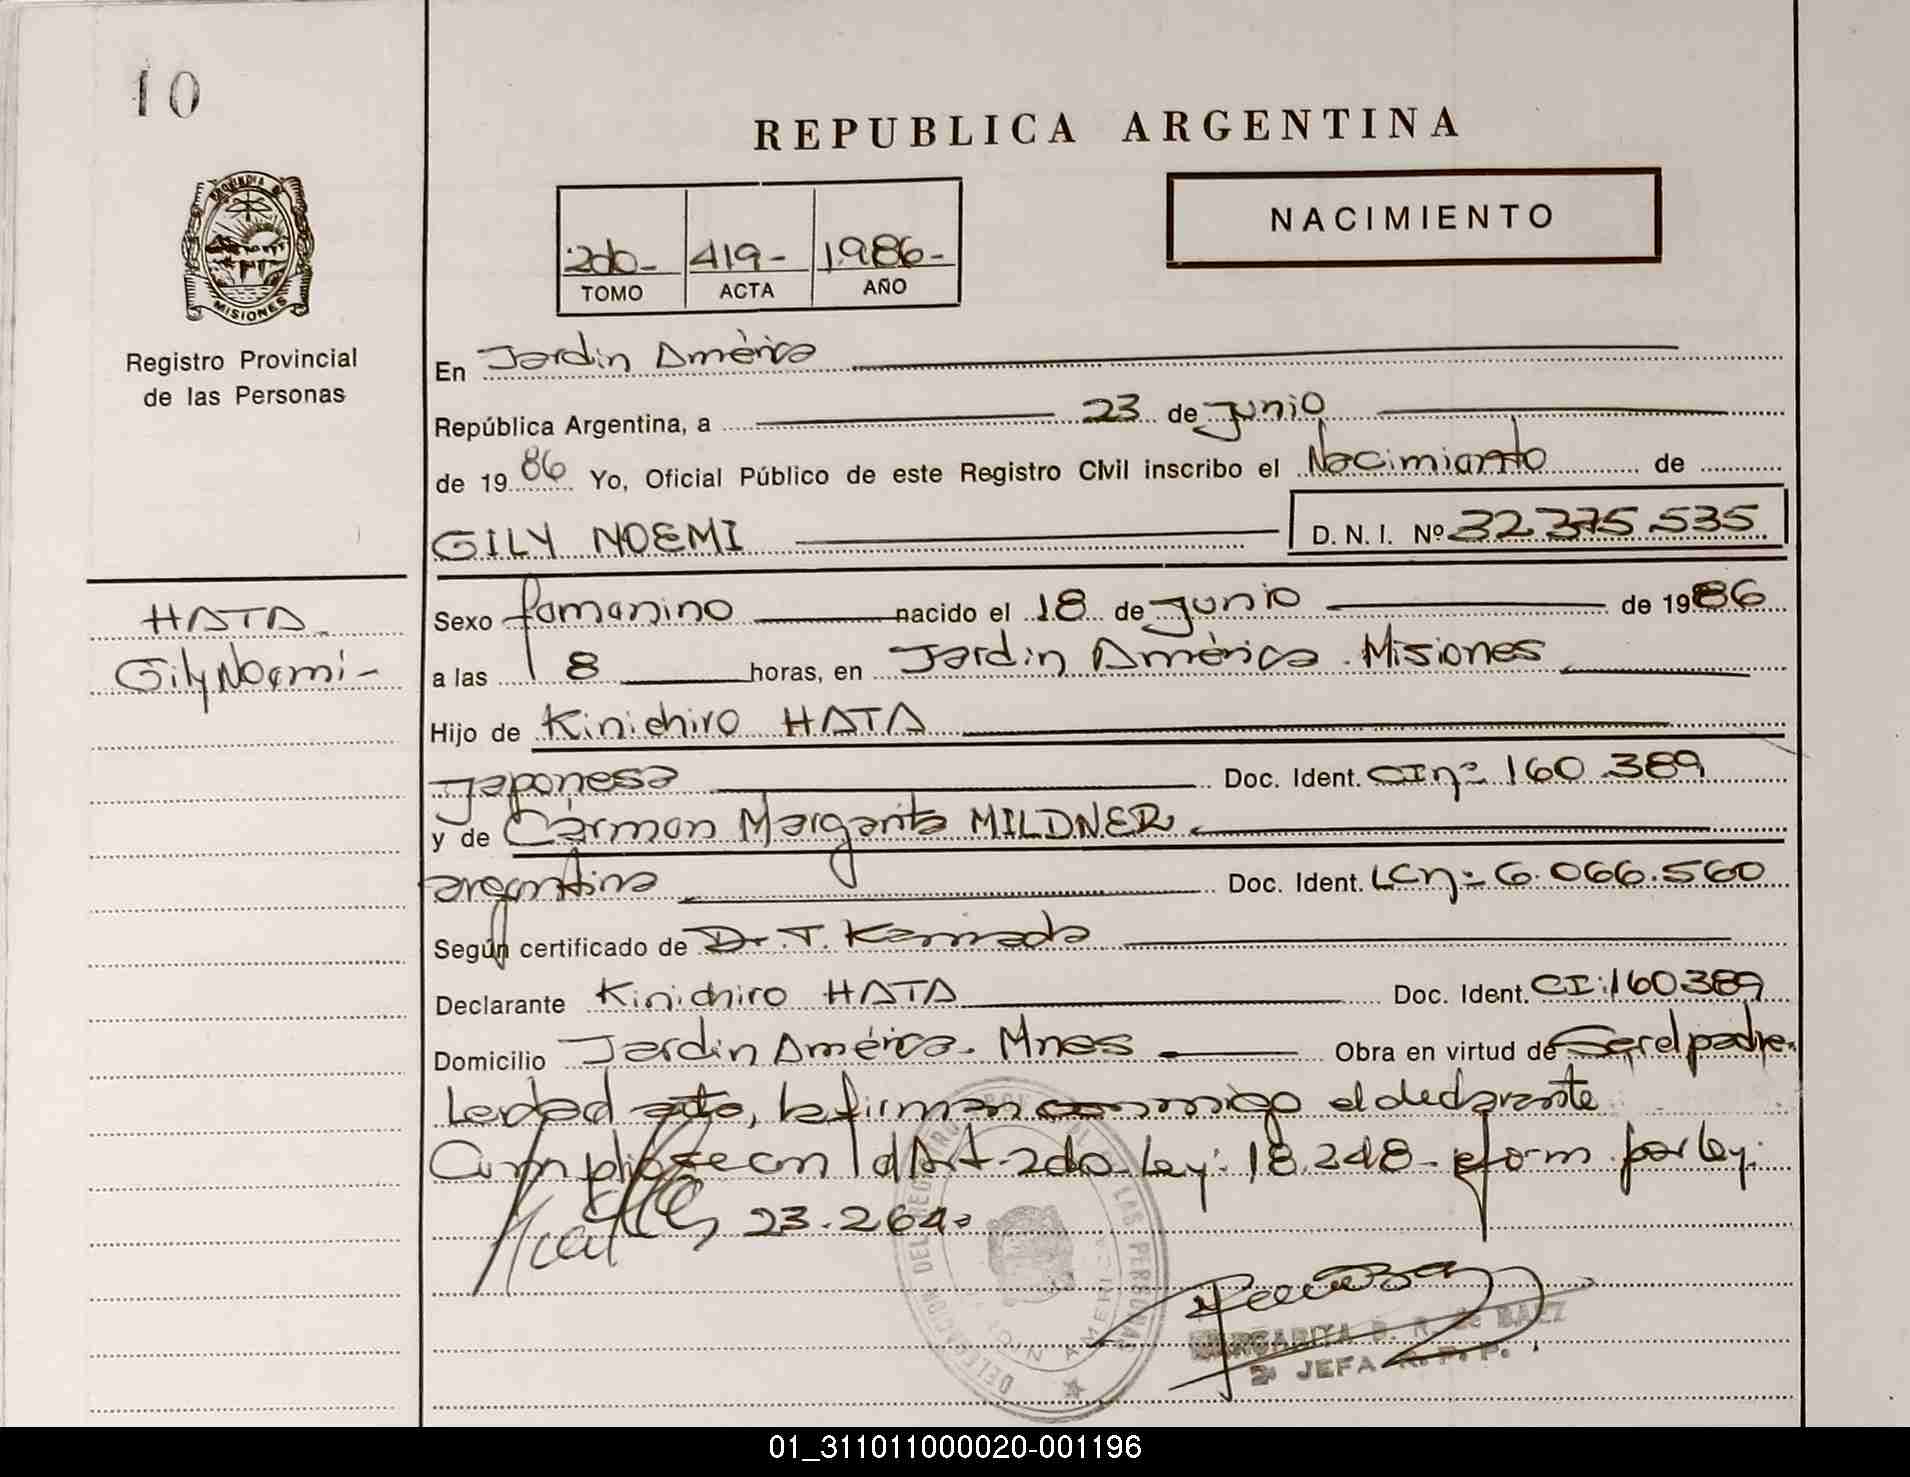 10
REPUBLICA ARGENTINA
PROVINCIA DE
MISIONES
Registro Provincial
de las Personas
2do- 419- 1.986-
TOMO ACTA AÑO
NACIMIENTO
En Jardin América
República Argentina, a 23 de Junio
de 1986 Yo, Oficial Público de este Registro Civil inscribo el Nacimiento de
GILY NOEMI D. N. I. Nº 32.375.535
HATA
Gily Noemi-
Sexo femenino nacido el 18 de Junio de 1986
a las 8 horas, en Jardin América. Misiones
Hijo de Kinichiro HATA
Japonesa Doc. Ident. CI nº 160.389
y de Carmen Margarita MILDNER
argentina Doc. Ident. LC nº 6.066.560
Según certificado de Dr. T. Kamada
Declarante Kinichiro HATA Doc. Ident. CI: 160.389
Domicilio Jardin América. Mnes Obra en virtud de Ser el padre.
Leida el acta, la firman conmigo el declarante
Cumplióse con el Art 2do Ley: 18.248- por ley.
23.264.
DELEGACION DEL REGISTRO PROVINCIAL DE LAS PERSONAS
JARDIN AMERICA
MARGARITA B. R. de BAEZ
2ª JEFA R. P. P.
01_311011000020-001196